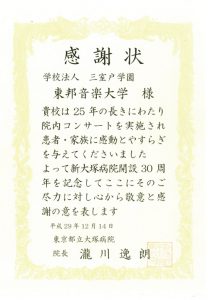 感謝状
学校法人 三室戸学園
東邦音楽大学 様
貴校は25年の長きにわたり
院内コンサートを実施され
患者・家族に感動とやすらぎ
を与えてくださいました
よって新大塚病院開設30周
年を記念してここにそのご
尽力に対し心から敬意と感
謝の意を表します
平成29年12月14日
東京都立大塚病院
院長 瀧川逸朗